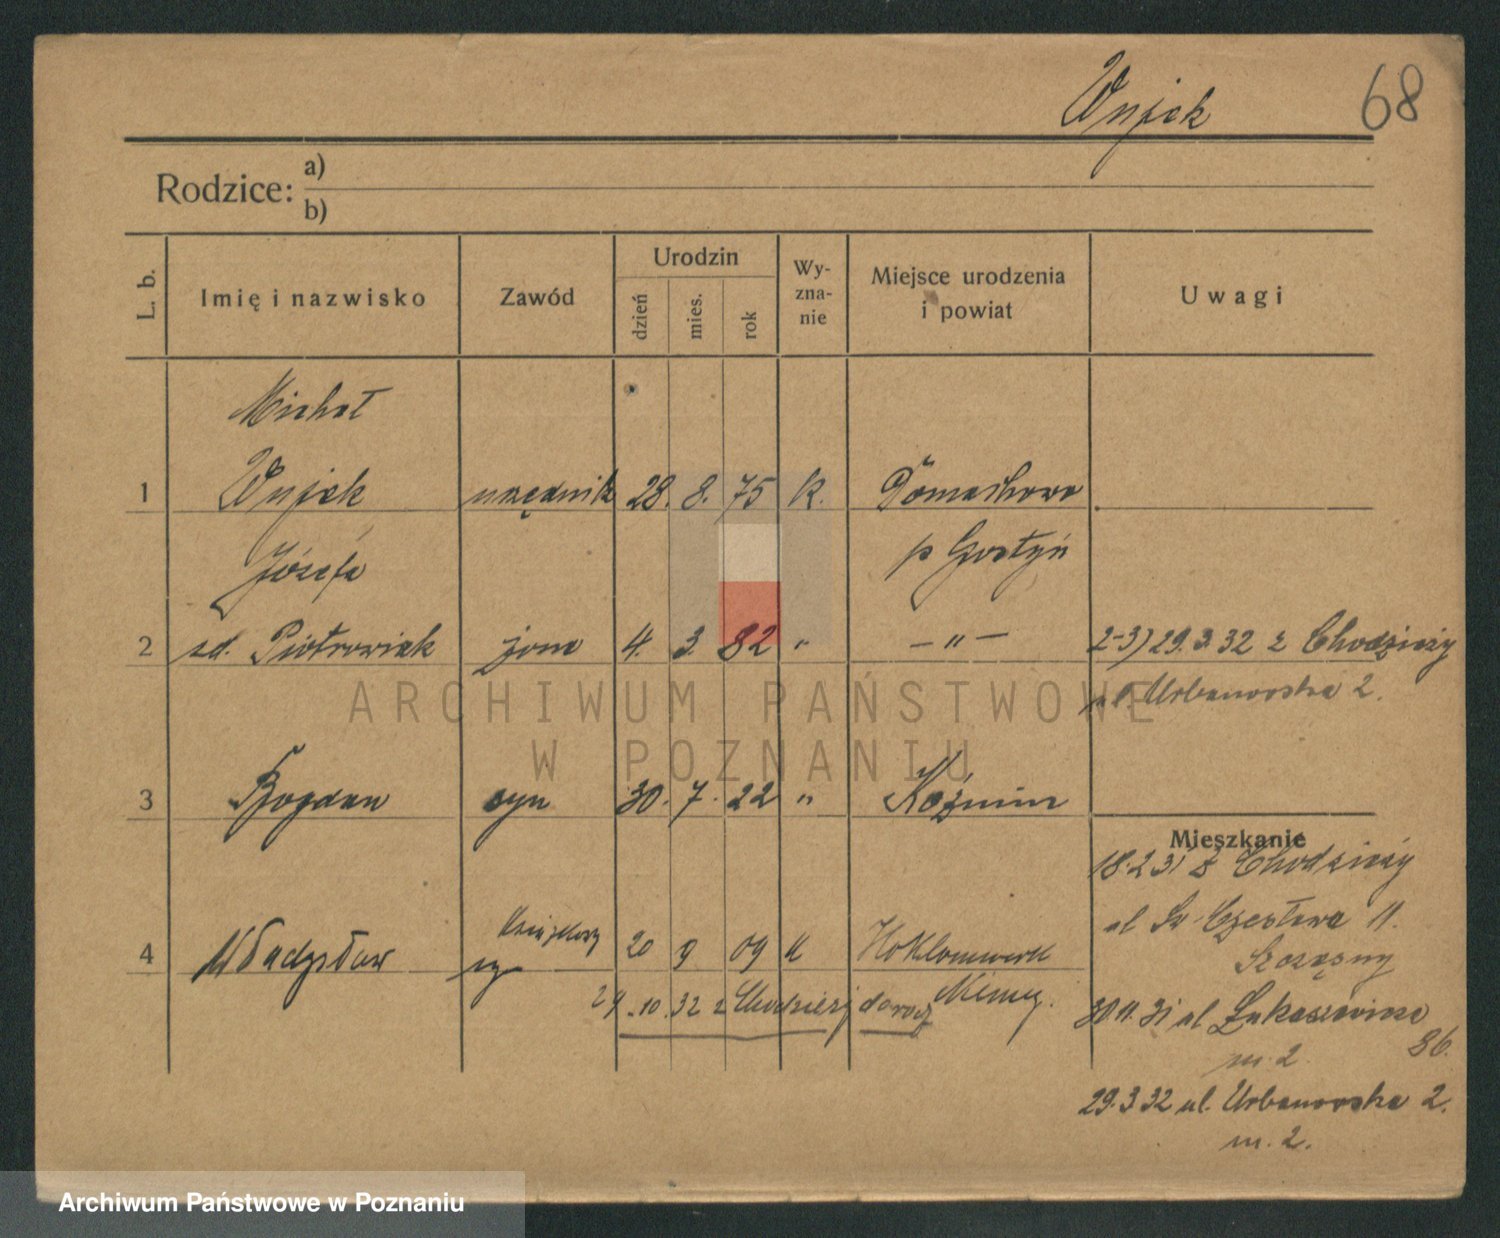 Wujek 68
Rodzice: a)
b)
L. b. Imię i nazwisko Zawód Urodzin dzień mies. rok Wy-zna-nie Miejsce urodzenia i powiat Uwagi
Michał
1 Wujek urzędnik 28. 8. 75 k. Domachowo
Józefa p Gostyń
2 zd. Piotrowiak żona 4. 3. 82 " — " — 2-3) 29.3.32 z Chodzieży
ul. Urbanowska 2.
3 Bogdan syn 30. 7. 22 " Koźmin
Mieszkanie
18.2.31 z Chodzieży
ul Św Czesława 11.
4 Władysław sy 20 9 09 k
Szczęsny
29.10.32 z Chodzieży Niemcy.
30.11.31 ul Łukaszewicza
86.
m. 2
29.3.32 ul. Urbanowska 2.
m. 2.
ARCHIWUM PAŃSTWOWE
W POZNANIU
Archiwum Państwowe w Poznaniu